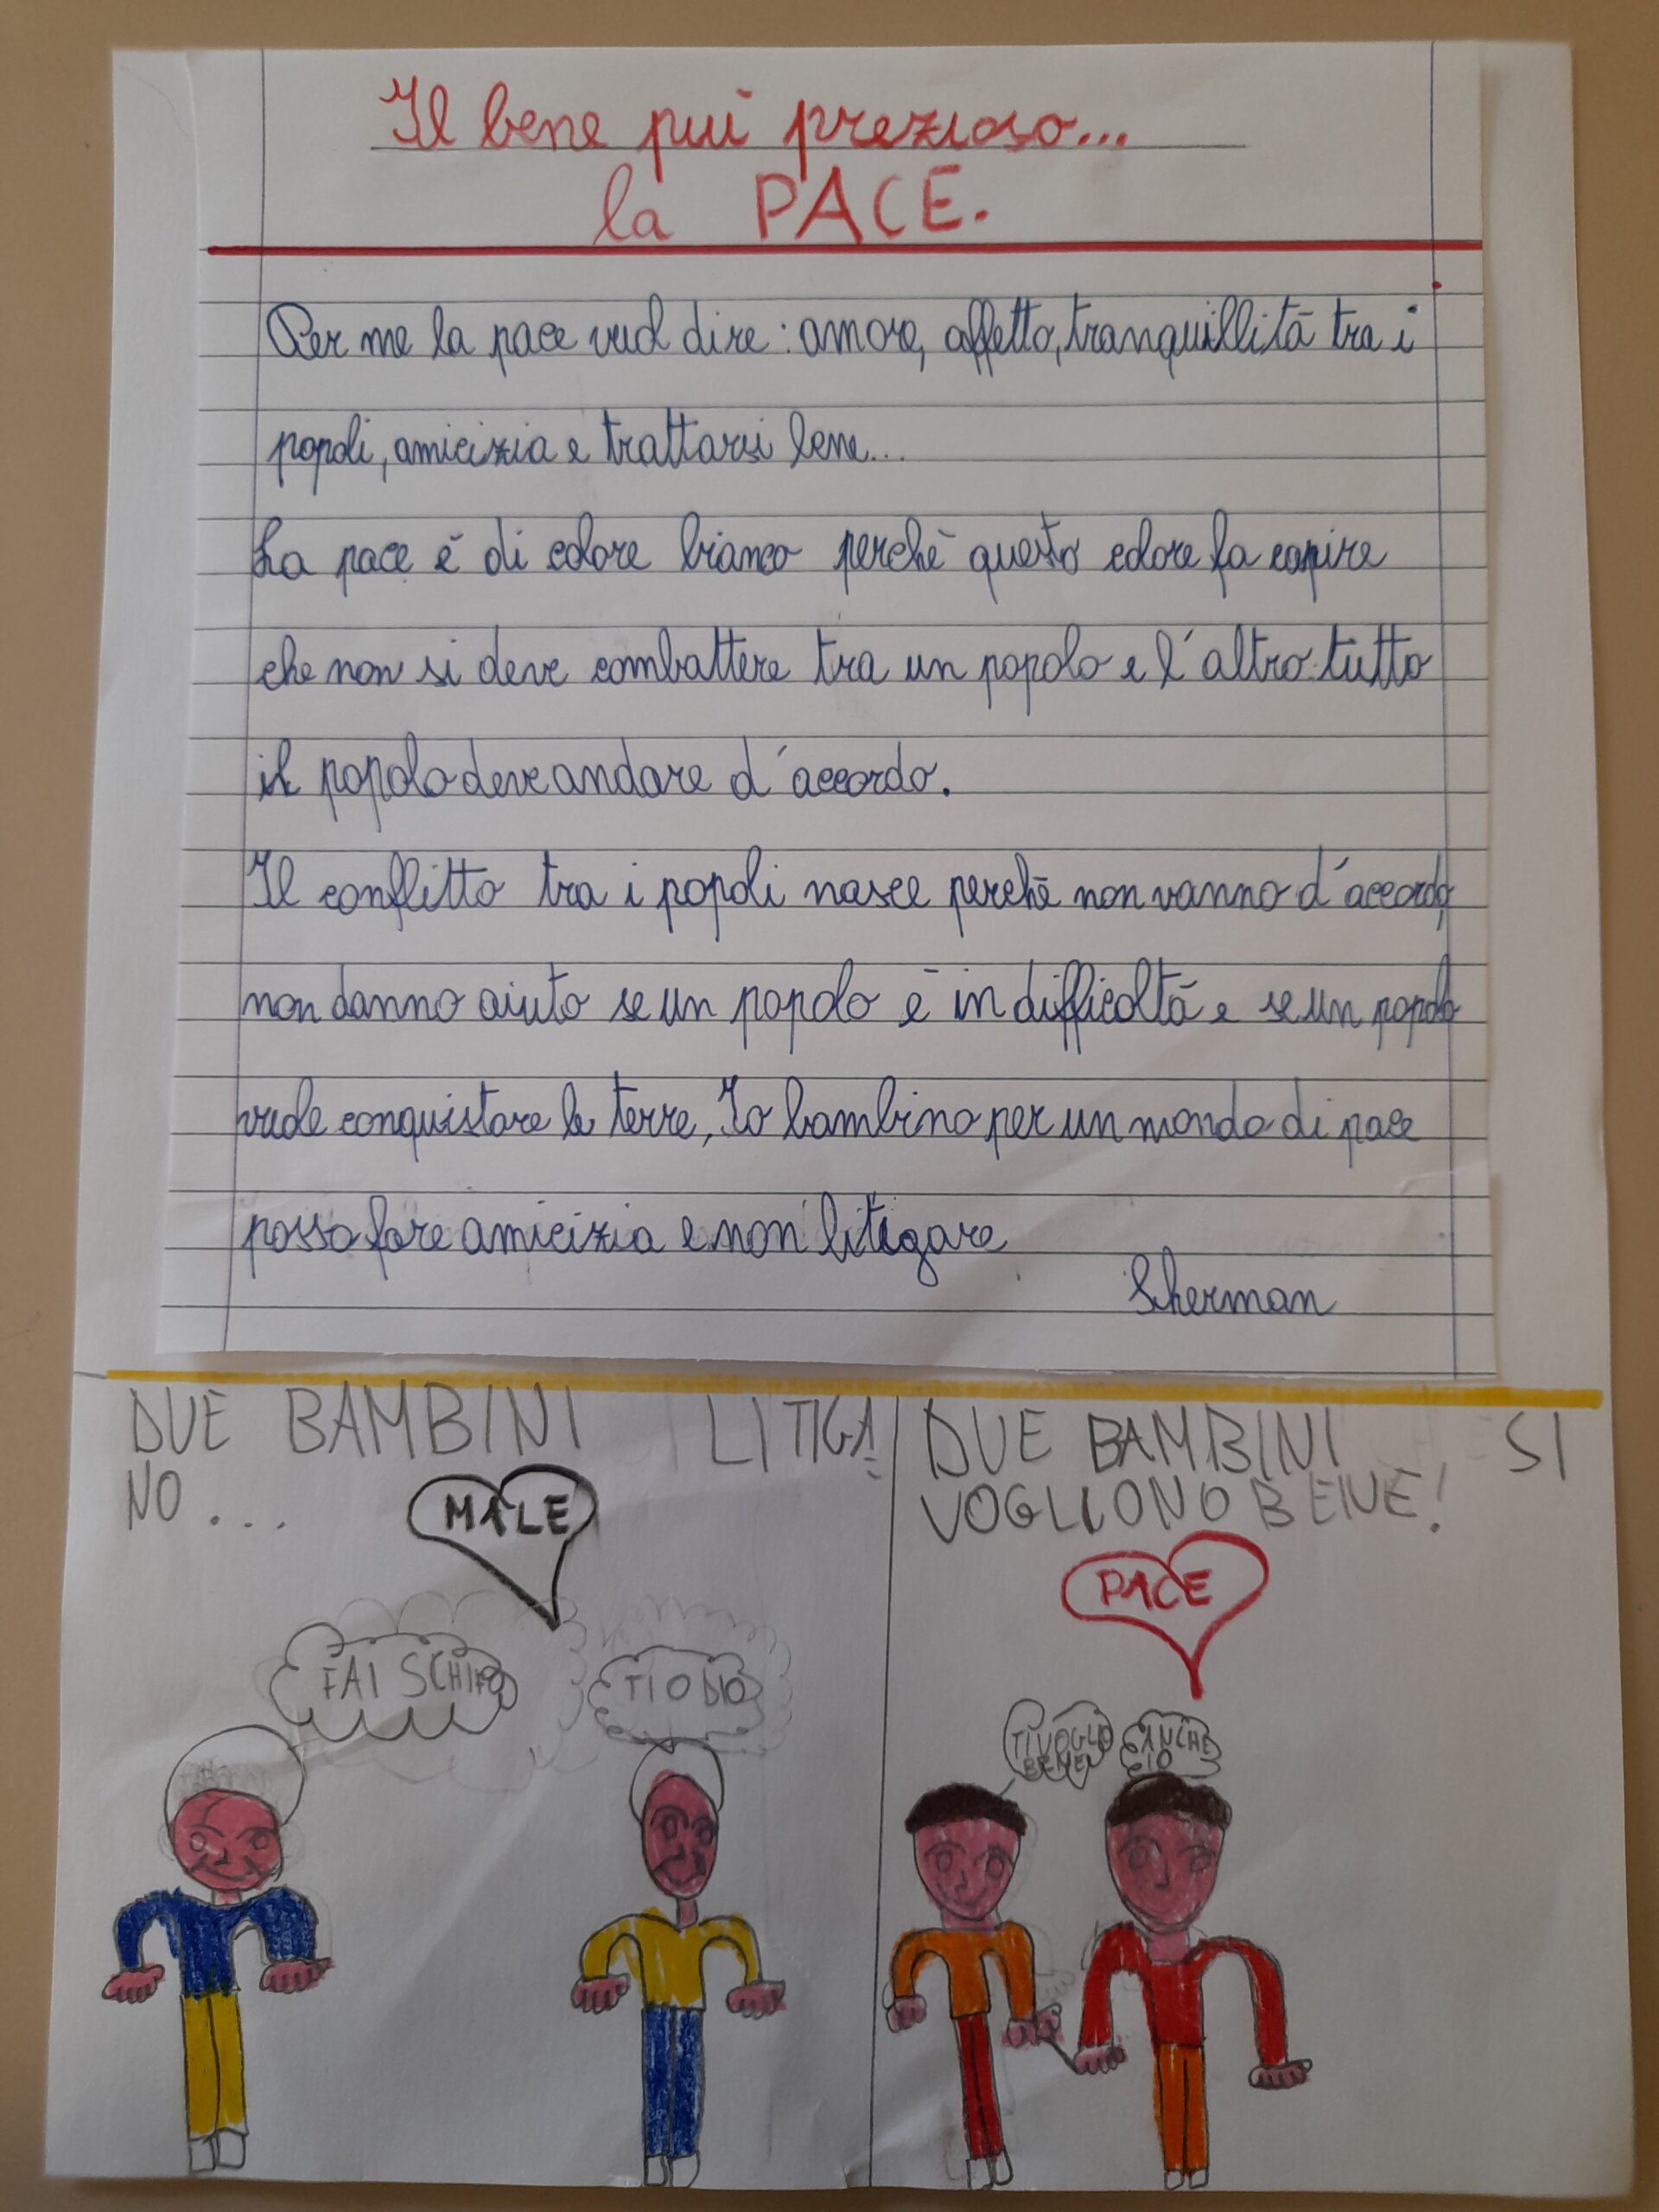 Il bene più prezioso...
la PACE.
Per me la pace vuol dire: amore, affetto, tranquillità tra i
popoli, amicizia e trattarsi bene...
La pace è di colore bianco perchè questo colore fa capire
che non si deve combattere tra un popolo e l'altro: tutto
il popolo deve andare d'accordo.
Il conflitto tra i popoli nasce perchè non vanno d'accordo,
non danno aiuto se un popolo è in difficoltà e se un popolo
vuole conquistare le terre, Io bambino per un mondo di pace
posso fare amicizia e non litigare
Sherman
DUE BAMBINI LITIGA-
NO...
MALE
FAI SCHIFO
TI ODIO
DUE BAMBINI SI
VOGLIONO BENE!
PACE
TI VOGLIO
BENE
ANCHE
IO